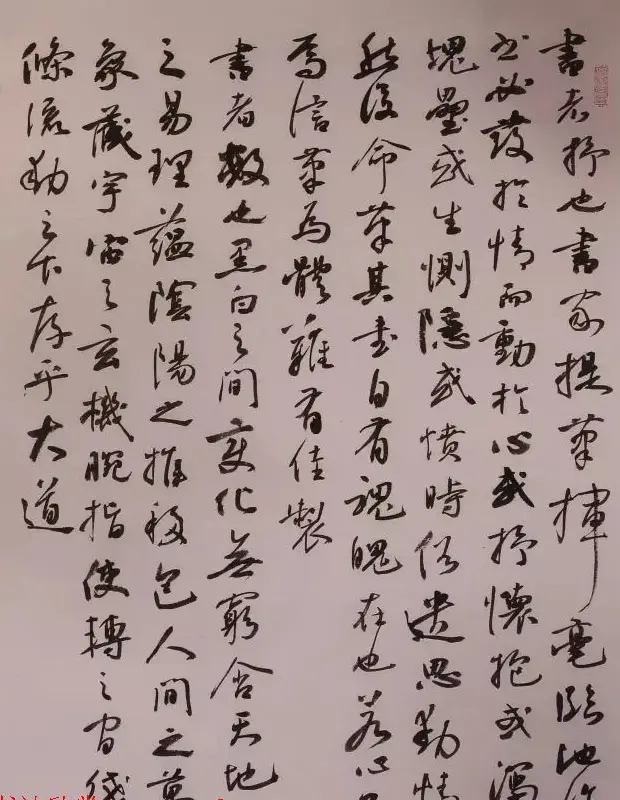 書者抒也書家提筆揮毫臨池作
書必發於情而動於心或抒懷抱或瀉
塊壘或生惻隱或憤時俗遺思動情
然後命筆其書自有魂魄在也若心
焉信筆為體難有佳製
書者數也黑白之間變化無窮含天地
之易理蘊陰陽之推移包人間之萬
象藏宇宙之玄機腕指使轉之間
條流動之下存乎大道